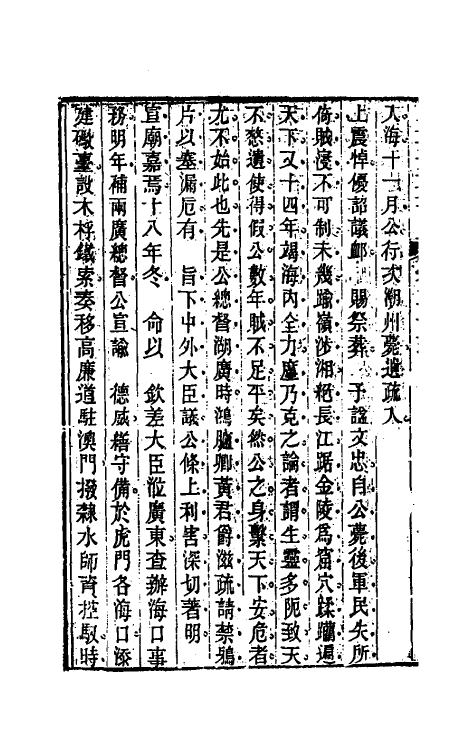 入海十一月公行次潮州薨遺疏入
上震悼優詔議卹 賜祭葬 予諡文忠自公薨後軍民失所
倚賊浸不可制未幾踰嶺涉湘絕長江踞金陵爲窟穴蹂躪遍
天下又十四年竭海內全力廑乃克之論者謂生靈多阨致天
不憗遺使得假公數年賊不足平矣然公之身繫天下安危者
尤不始此也先是公總督湖廣時鴻臚卿黃君爵滋疏請禁鴉
片以塞漏卮有 旨下中外大臣議公條上利害深切著明
宣廟嘉焉十八年冬 命以 欽差大臣涖廣東查辦海口事
務明年補兩廣總督公宣諭 德威繕守備於虎門各海口添
建礮臺設木桴鐵索奏移高廉道駐澳門撥隸水師資控馭時